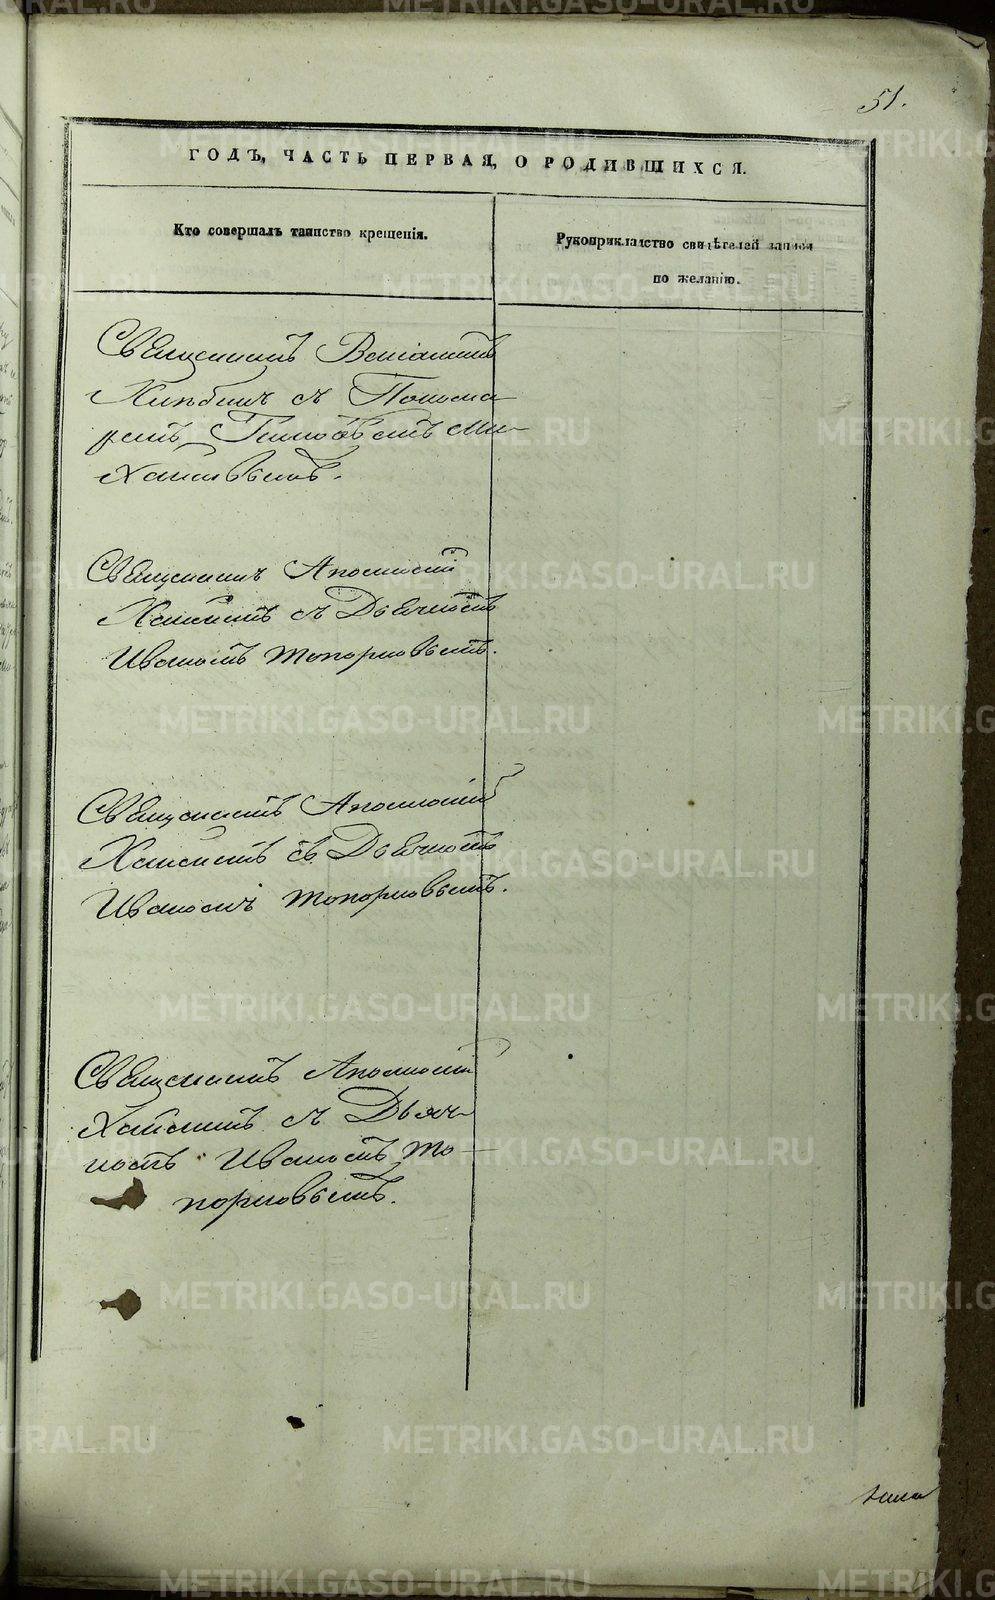 51.
ГОДЪ, ЧАСТЬ ПЕРВАЯ, О РОДИВШИХСЯ.
Кто совершалъ таинство крещенія.
Рукоприкладство свидѣтелей записи
по желанію.
Священникъ Веніаминъ
съ Понома-
ремъ Ми-
хаиловымъ.
Священникъ Аполлоній
съ Дьячкомъ
Иваномъ Топорковымъ.
Священникъ Аполлоній
съ Дьячкомъ
Иваномъ Топорковымъ.
Священникъ Аполлоній
съ Дьяч-
комъ Иваномъ То-
порковымъ.
METRIKI.GASO-URAL.RU